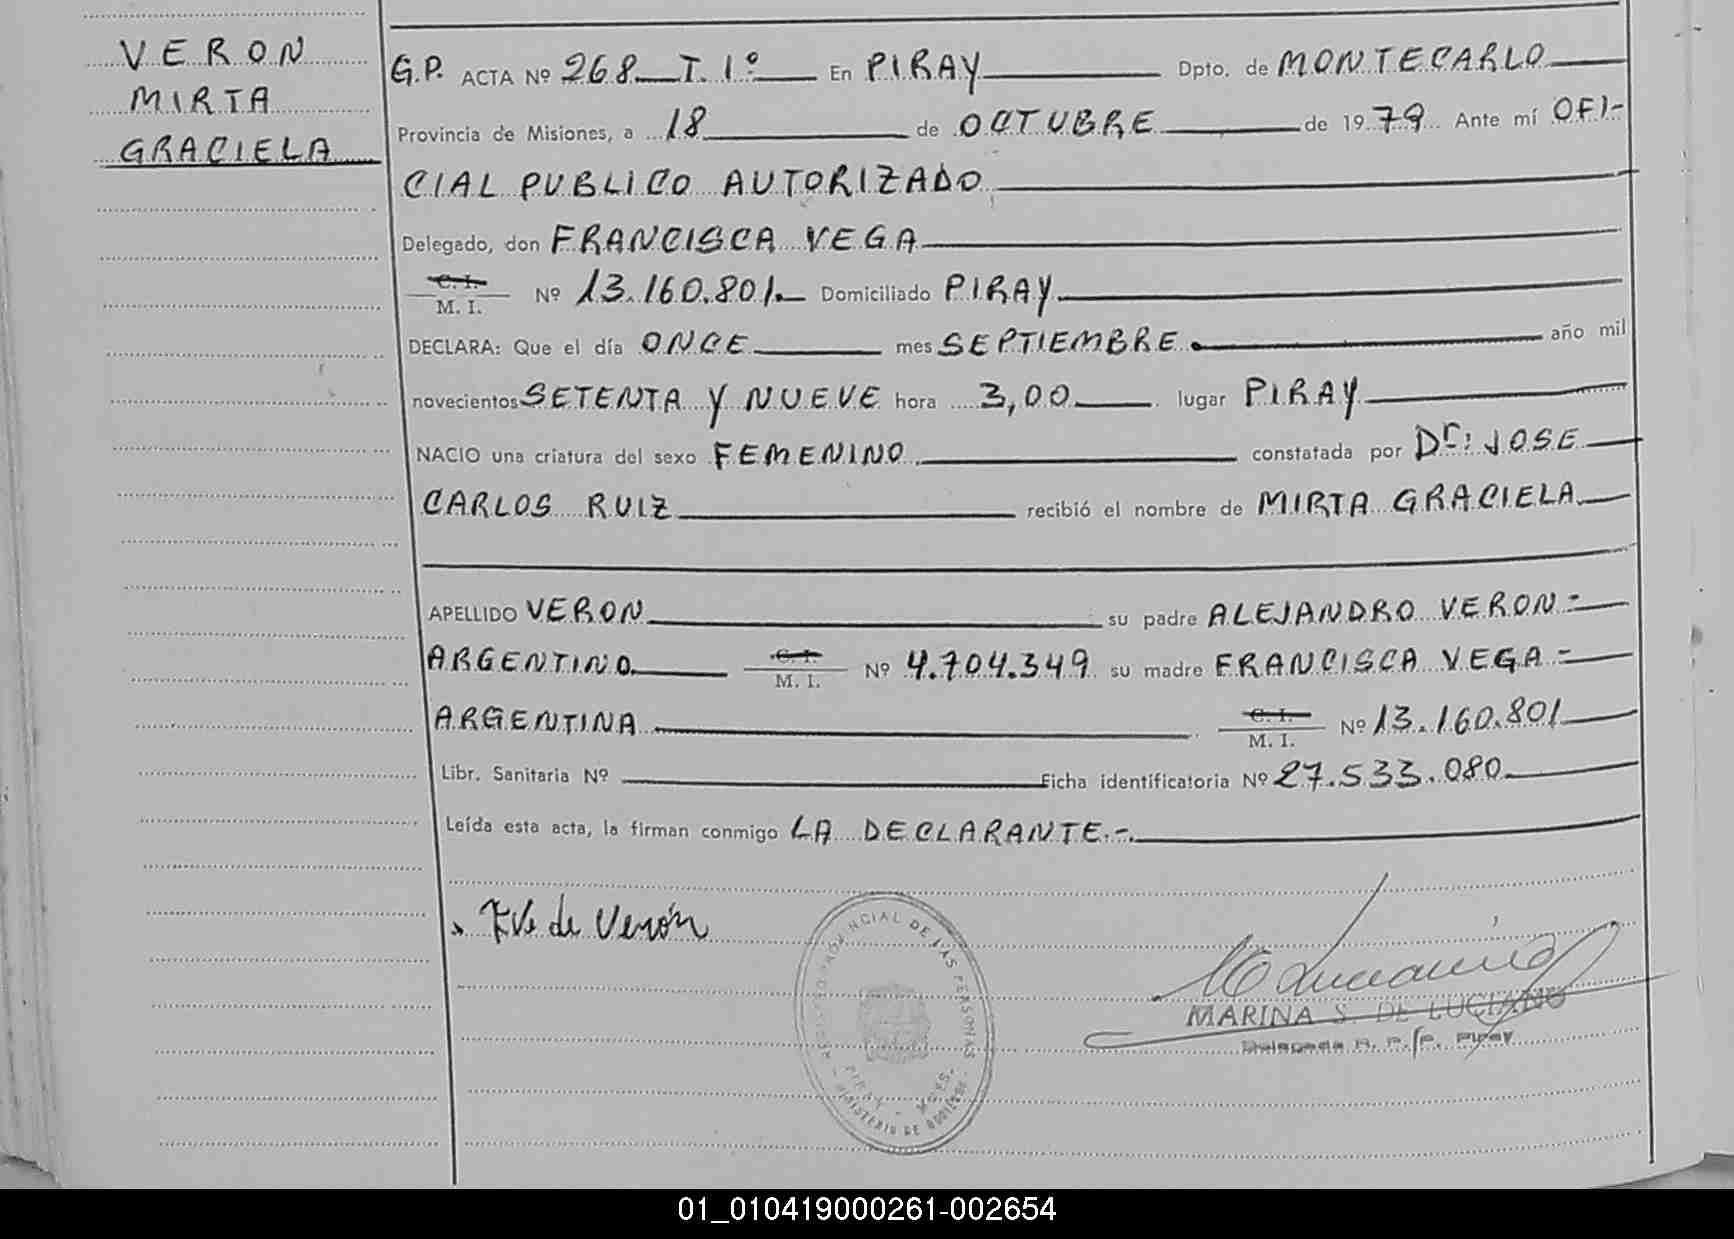 VERON
MIRTA
GRACIELA
G.P. ACTA Nº 268 T. 1º En PIRAY Dpto. de MONTECARLO
Provincia de Misiones, a 18 de OCTUBRE de 1979 Ante mí OFI-
CIAL PUBLICO AUTORIZADO
Delegado, don FRANCISCA VEGA
C. I.
M. I. Nº 13.160.801.- Domiciliado PIRAY
DECLARA: Que el día ONCE mes SEPTIEMBRE año mil
novecientos SETENTA Y NUEVE hora 3,00 lugar PIRAY
NACIO una criatura del sexo FEMENINO constatada por Dr: JOSE
CARLOS RUIZ recibió el nombre de MIRTA GRACIELA
APELLIDO VERON su padre ALEJANDRO VERON.-
ARGENTINO C. I. M. I. Nº 4.704.349 su madre FRANCISCA VEGA.-
ARGENTINA C. I. M. I. Nº 13.160.801
Libr. Sanitaria Nº Ficha identificatoria Nº 27.533.080
Leída esta acta, la firman conmigo LA DECLARANTE.-.
FV de Verón
REGISTRO PROVINCIAL DE LAS PERSONAS
PIRAY - MNES.
MINISTERIO DE GOBIERNO
MARINA S. DE LUCIANO
Delegada R. P. P. Piray
01_010419000261-002654